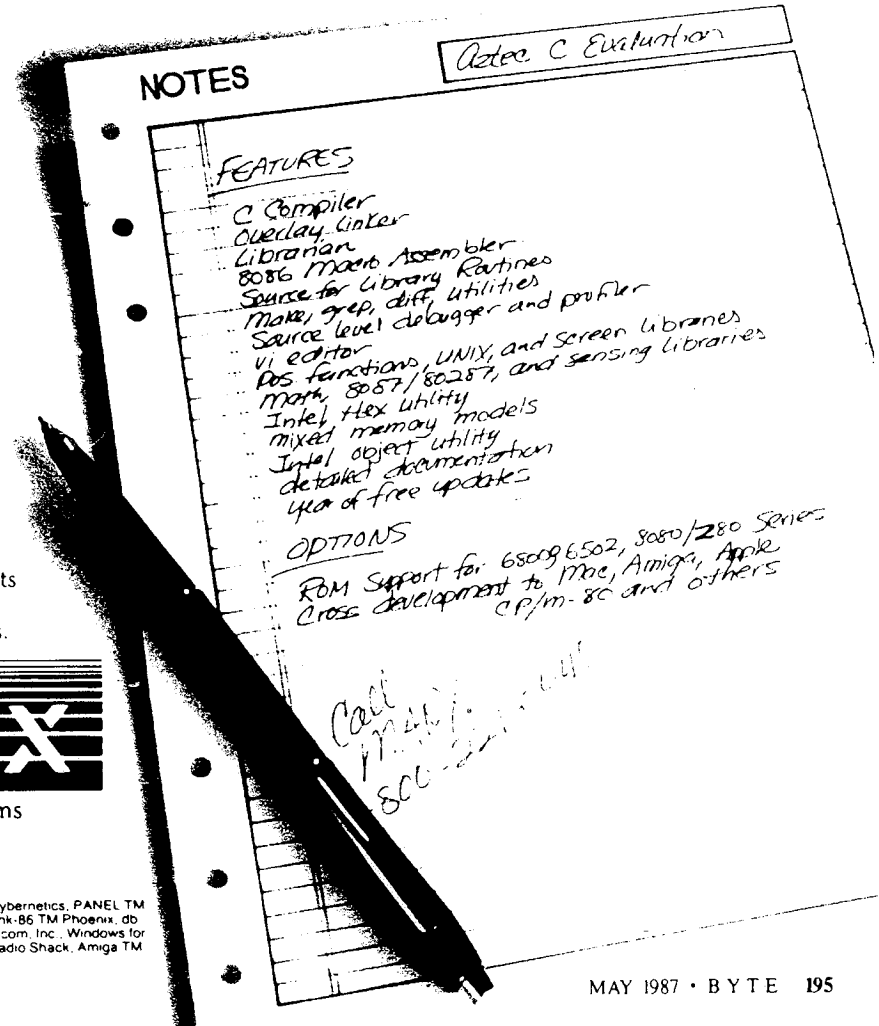 NOTES
Aztec C Evaluation
FEATURES
C Compiler
Overlay Linker
Librarian
8086 Macro Assembler
Source for Library Routines
Make, grep, diff, utilities
Source level debugger and profiler
vi editor
Dos functions, UNIX, and screen libraries
Math, 8087/80287, and sensing libraries
Intel Hex utility
mixed memory models
Intel object utility
detailed documentation
year of free updates
OPTIONS
ROM Support for 68009 6502, 8080/Z80 Series
Cross development to Mac, Amiga, Apple
CP/m-80 and others
Call
800
ts
s.
ms
ybernetics, PANEL TM
nk-86 TM Phoenix, db
com, Inc., Windows for
adio Shack, Amiga TM
MAY 1987 • BYTE 195